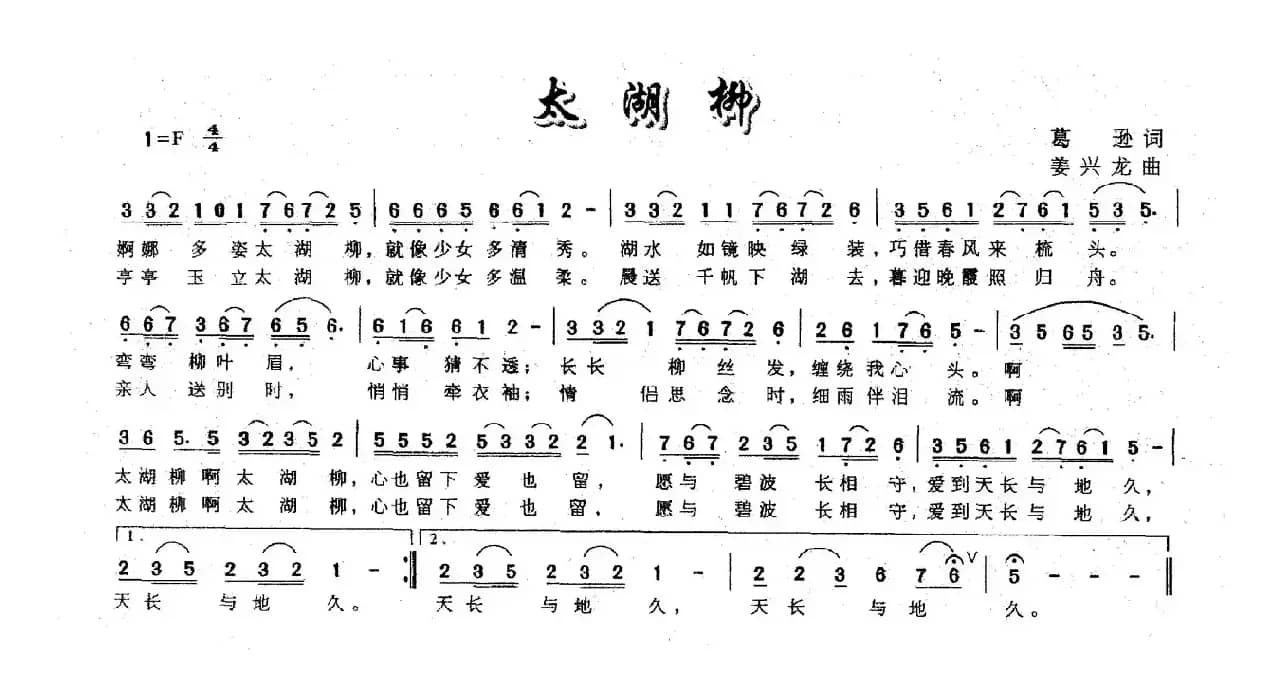 太湖柳
1=F 4/4
葛逊词
姜兴龙曲
3 3 2 1 0 1 7 6 7 2 5 | 6 6 6 5 6 6 1 2 - | 3 3 2 1 1 7 6 7 2 6 | 3 5 6 1 2 7 6 1 5 3 5. |
婀娜多姿太湖柳，就像少女多清秀。湖水如镜映绿装，巧借春风来梳头。
亭亭玉立太湖柳，就像少女多温柔。晨送千帆下湖去，暮迎晚霞照归舟。
6 6 7 3 6 7 6 5 6. | 6 1 6 6 1 2 - | 3 3 2 1 7 6 7 2 6 | 2 6 1 7 6 5 - | 3 5 6 5 3 5. |
弯弯柳叶眉，心事猜不透；长长柳丝发，缠绕我心头。啊
亲人送别时，悄悄牵衣袖；情侣思念时，细雨伴泪流。啊
3 6 5. 5 3 2 3 5 2 | 5 5 5 2 5 3 3 2 2 1. | 7 6 7 2 3 5 1 7 2 6 | 3 5 6 1 2 7 6 1 5 - |
太湖柳啊太湖柳，心也留下爱也留，愿与碧波长相守，爱到天长与地久，
太湖柳啊太湖柳，心也留下爱也留，愿与碧波长相守，爱到天长与地久，
1. 2.
2 3 5 2 3 2 1 - :‖ 2 3 5 2 3 2 1 - | 2 2 3 6 7 6 V | 5 - - - ‖
天长与地久。天长与地久，天长与地久。